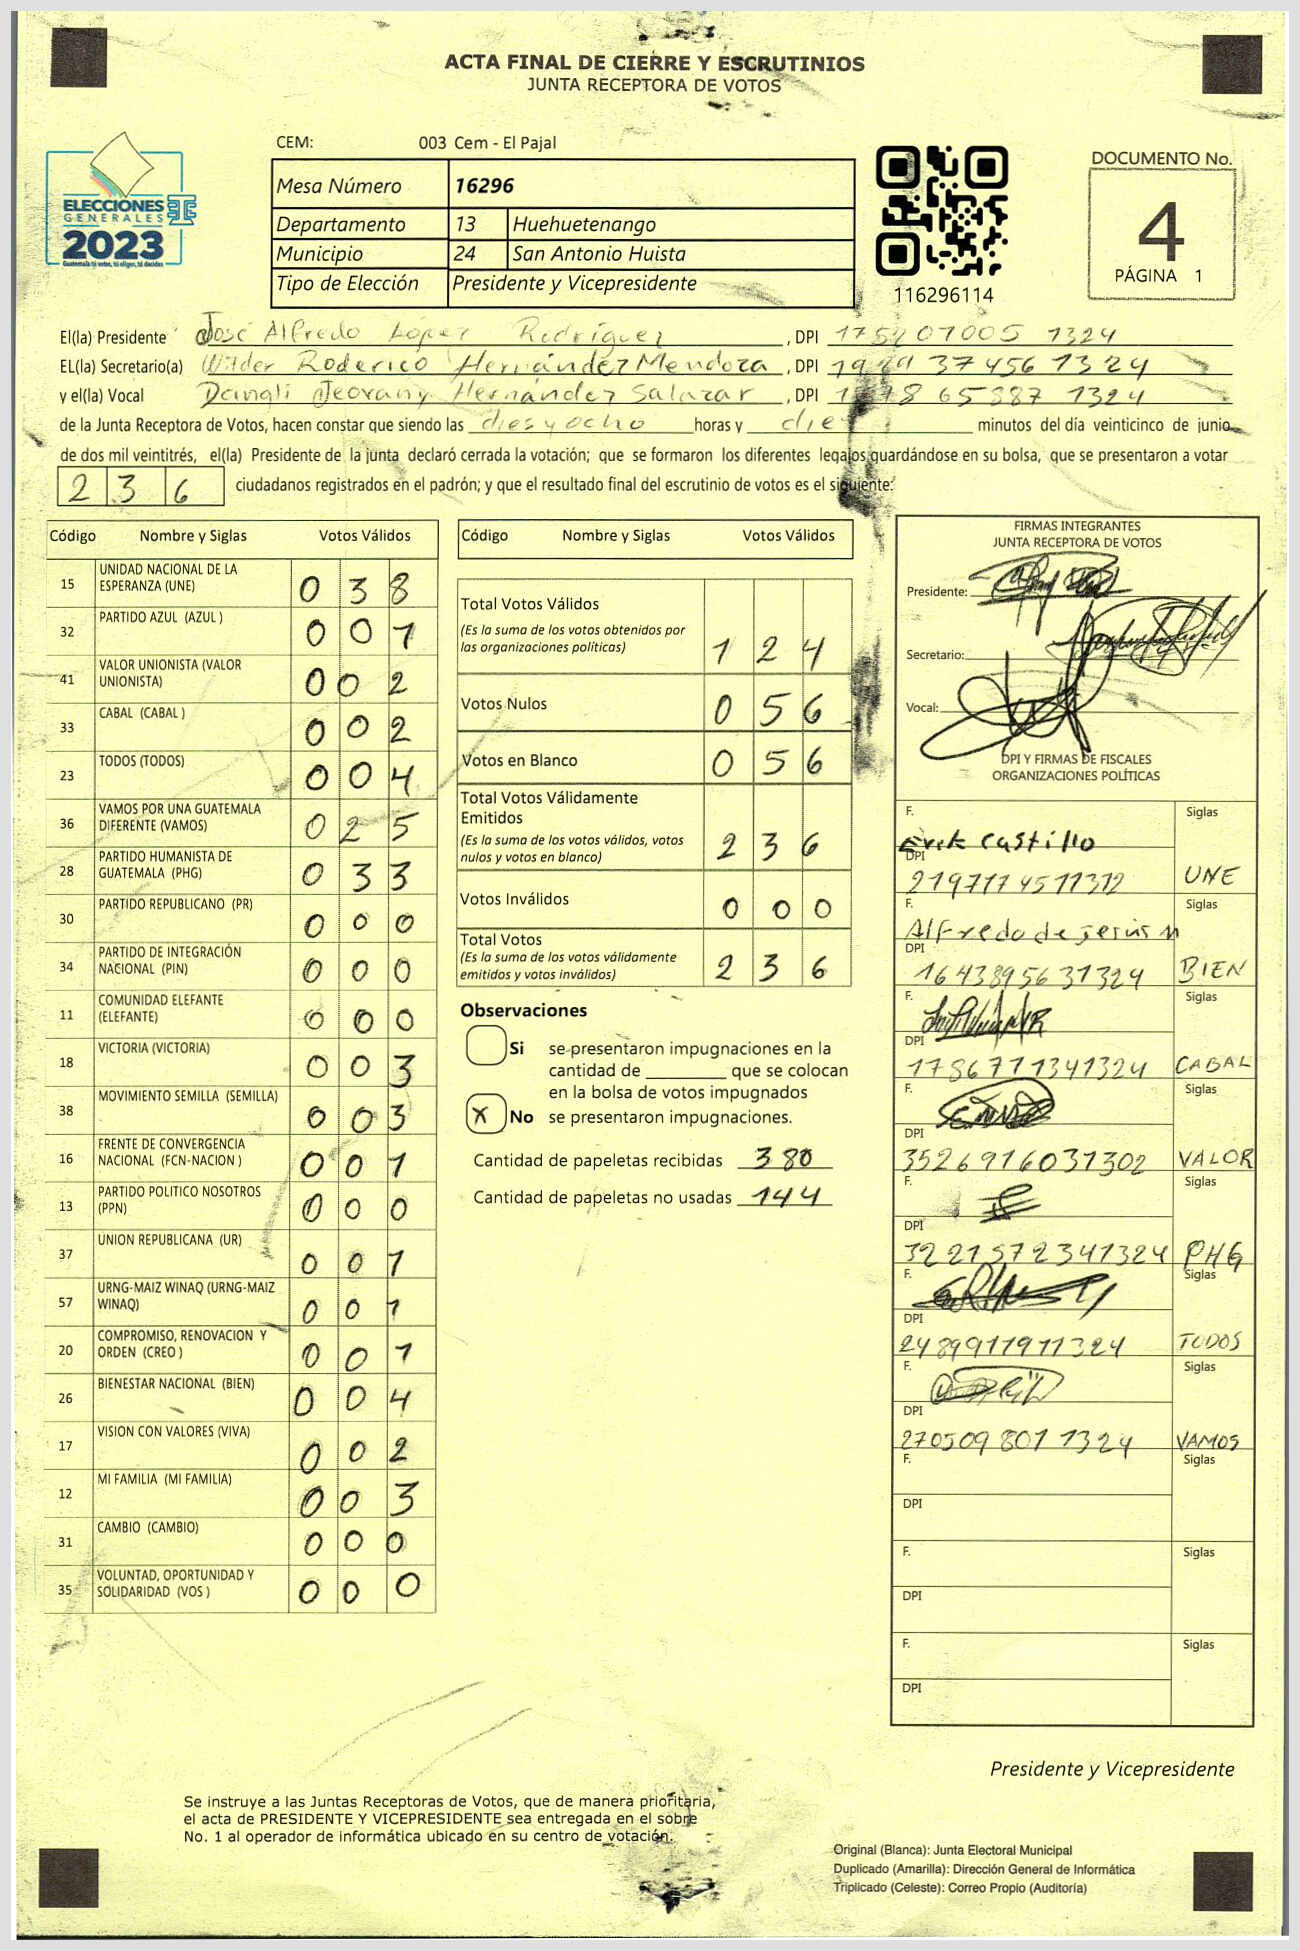 ACTA FINAL DE CIERRE Y ESCRUTINIOS
JUNTA RECEPTORA DE VOTOS
CEM: 003 Cem - El Pajal
ELECCIONES
GENERALES
2023
Guatemala tú votas, tú eliges, tú decides
Mesa Número 16296
Departamento 13 Huehuetenango
Municipio 24 San Antonio Huista
Tipo de Elección Presidente y Vicepresidente
116296114
DOCUMENTO No.
4
PÁGINA 1
El(la) Presidente José Alfredo López Rodríguez, DPI 1324
EL(la) Secretario(a) Wilder Roderico Hernández Mendoza, DPI 37456 1324
y el(la) Vocal Dangli Jeovany Hernández Salazar, DPI 65887 1324
de la Junta Receptora de Votos, hacen constar que siendo las diesyocho horas y diez minutos del día veinticinco de junio
de dos mil veintitrés, el(la) Presidente de la junta declaró cerrada la votación; que se formaron los diferentes legajos guardándose en su bolsa, que se presentaron a votar
236 ciudadanos registrados en el padrón; y que el resultado final del escrutinio de votos es el siguiente:
Código Nombre y Siglas Votos Válidos
15 UNIDAD NACIONAL DE LA ESPERANZA (UNE) 038
32 PARTIDO AZUL (AZUL ) 001
41 VALOR UNIONISTA (VALOR UNIONISTA) 002
33 CABAL (CABAL ) 002
23 TODOS (TODOS) 004
36 VAMOS POR UNA GUATEMALA DIFERENTE (VAMOS) 025
28 PARTIDO HUMANISTA DE GUATEMALA (PHG) 033
30 PARTIDO REPUBLICANO (PR) 000
34 PARTIDO DE INTEGRACIÓN NACIONAL (PIN) 000
11 COMUNIDAD ELEFANTE (ELEFANTE) 000
18 VICTORIA (VICTORIA) 003
38 MOVIMIENTO SEMILLA (SEMILLA) 003
16 FRENTE DE CONVERGENCIA NACIONAL (FCN-NACION ) 001
13 PARTIDO POLITICO NOSOTROS (PPN) 000
37 UNION REPUBLICANA (UR) 001
57 URNG-MAIZ WINAQ (URNG-MAIZ WINAQ) 001
20 COMPROMISO, RENOVACION Y ORDEN (CREO ) 001
26 BIENESTAR NACIONAL (BIEN) 004
17 VISION CON VALORES (VIVA) 002
12 MI FAMILIA (MI FAMILIA) 003
31 CAMBIO (CAMBIO) 000
35 VOLUNTAD, OPORTUNIDAD Y SOLIDARIDAD (VOS ) 000
Código Nombre y Siglas Votos Válidos
Total Votos Válidos
(Es la suma de los votos obtenidos por
las organizaciones políticas) 124
Votos Nulos 056
Votos en Blanco 056
Total Votos Válidamente
Emitidos
(Es la suma de los votos válidos, votos
nulos y votos en blanco) 236
Votos Inválidos 000
Total Votos
(Es la suma de los votos válidamente
emitidos y votos inválidos) 236
Observaciones
Si se presentaron impugnaciones en la
cantidad de ________ que se colocan
en la bolsa de votos impugnados
X No se presentaron impugnaciones.
Cantidad de papeletas recibidas 380
Cantidad de papeletas no usadas 144
FIRMAS INTEGRANTES
JUNTA RECEPTORA DE VOTOS
Presidente:
Secretario:
Vocal:
DPI Y FIRMAS DE FISCALES
ORGANIZACIONES POLÍTICAS
F. Erik Castillo Siglas
DPI 2197174511312 UNE
F. Alfredo de Jesús M Siglas
DPI 1643895631324 BIEN
F. Siglas
DPI 1786771341324 CABAL
F. Siglas
DPI 3526916031302 VALOR
F. Siglas
DPI 3221572341324 PHG
F. Siglas
DPI 2489911911324 TODOS
F. Siglas
DPI 2705098011324 VAMOS
F. Siglas
DPI
F. Siglas
DPI
F. Siglas
DPI
Presidente y Vicepresidente
Se instruye a las Juntas Receptoras de Votos, que de manera prioritaria,
el acta de PRESIDENTE Y VICEPRESIDENTE sea entregada en el sobre
No. 1 al operador de informática ubicado en su centro de votación.
Original (Blanca): Junta Electoral Municipal
Duplicado (Amarilla): Dirección General de Informática
Triplicado (Celeste): Correo Propio (Auditoría)